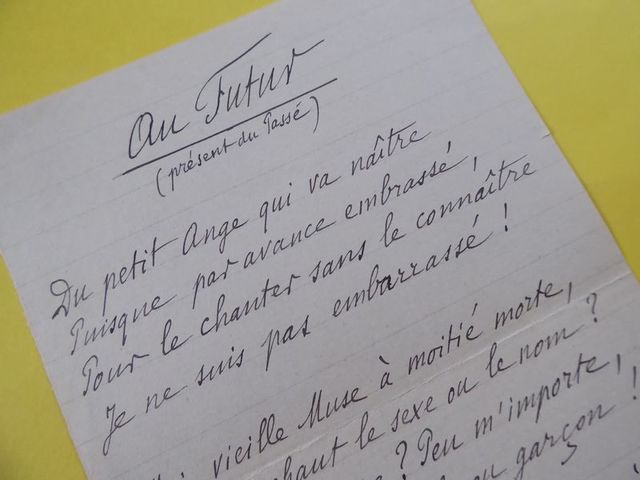 Au Futur
(présent du Passé)
Du petit Ange qui va naître
Puisque par avance embrassé,
Pour le chanter sans le connaître
Je ne suis pas embarrassé !
vieille Muse à moitié morte,
le sexe ou le nom ?
? Peu m'importe,
ou garçon !